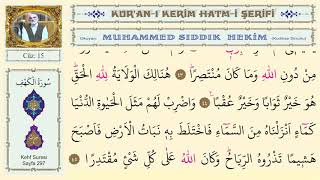 KUR'AN-I KERİM HATM-İ ŞERİFİ
Okuyan: MUHAMMED SIDDIK HEKİM
Cüz: 15
سُورَةُ الْكَهْفِ
Kehf Suresi
Sayfa 297
مِنْ دُونِ اللّٰهِ وَمَا كَانَ مُنْتَصِرًاۜ ﴿٤٣﴾ هُنَالِكَ الْوَلَايَةُ لِلّٰهِ الْحَقِّۜ
هُوَ خَيْرٌ ثَوَابًا وَخَيْرٌ عُقْبًا۟ ﴿٤٤﴾ وَاضْرِبْ لَهُمْ مَثَلَ الْحَيٰوةِ الدُّنْيَا
كَمَٓاءٍ اَنْزَلْنَاهُ مِنَ السَّمَٓاءِ فَاخْتَلَطَ بِه۪ نَبَاتُ الْاَرْضِ فَاَصْبَحَ
هَش۪يمًا تَذْرُوهُ الرِّيَاحُۜ وَكَانَ اللّٰهُ عَلٰى كُلِّ شَيْءٍ مُقْتَدِرًا ﴿٤٥﴾